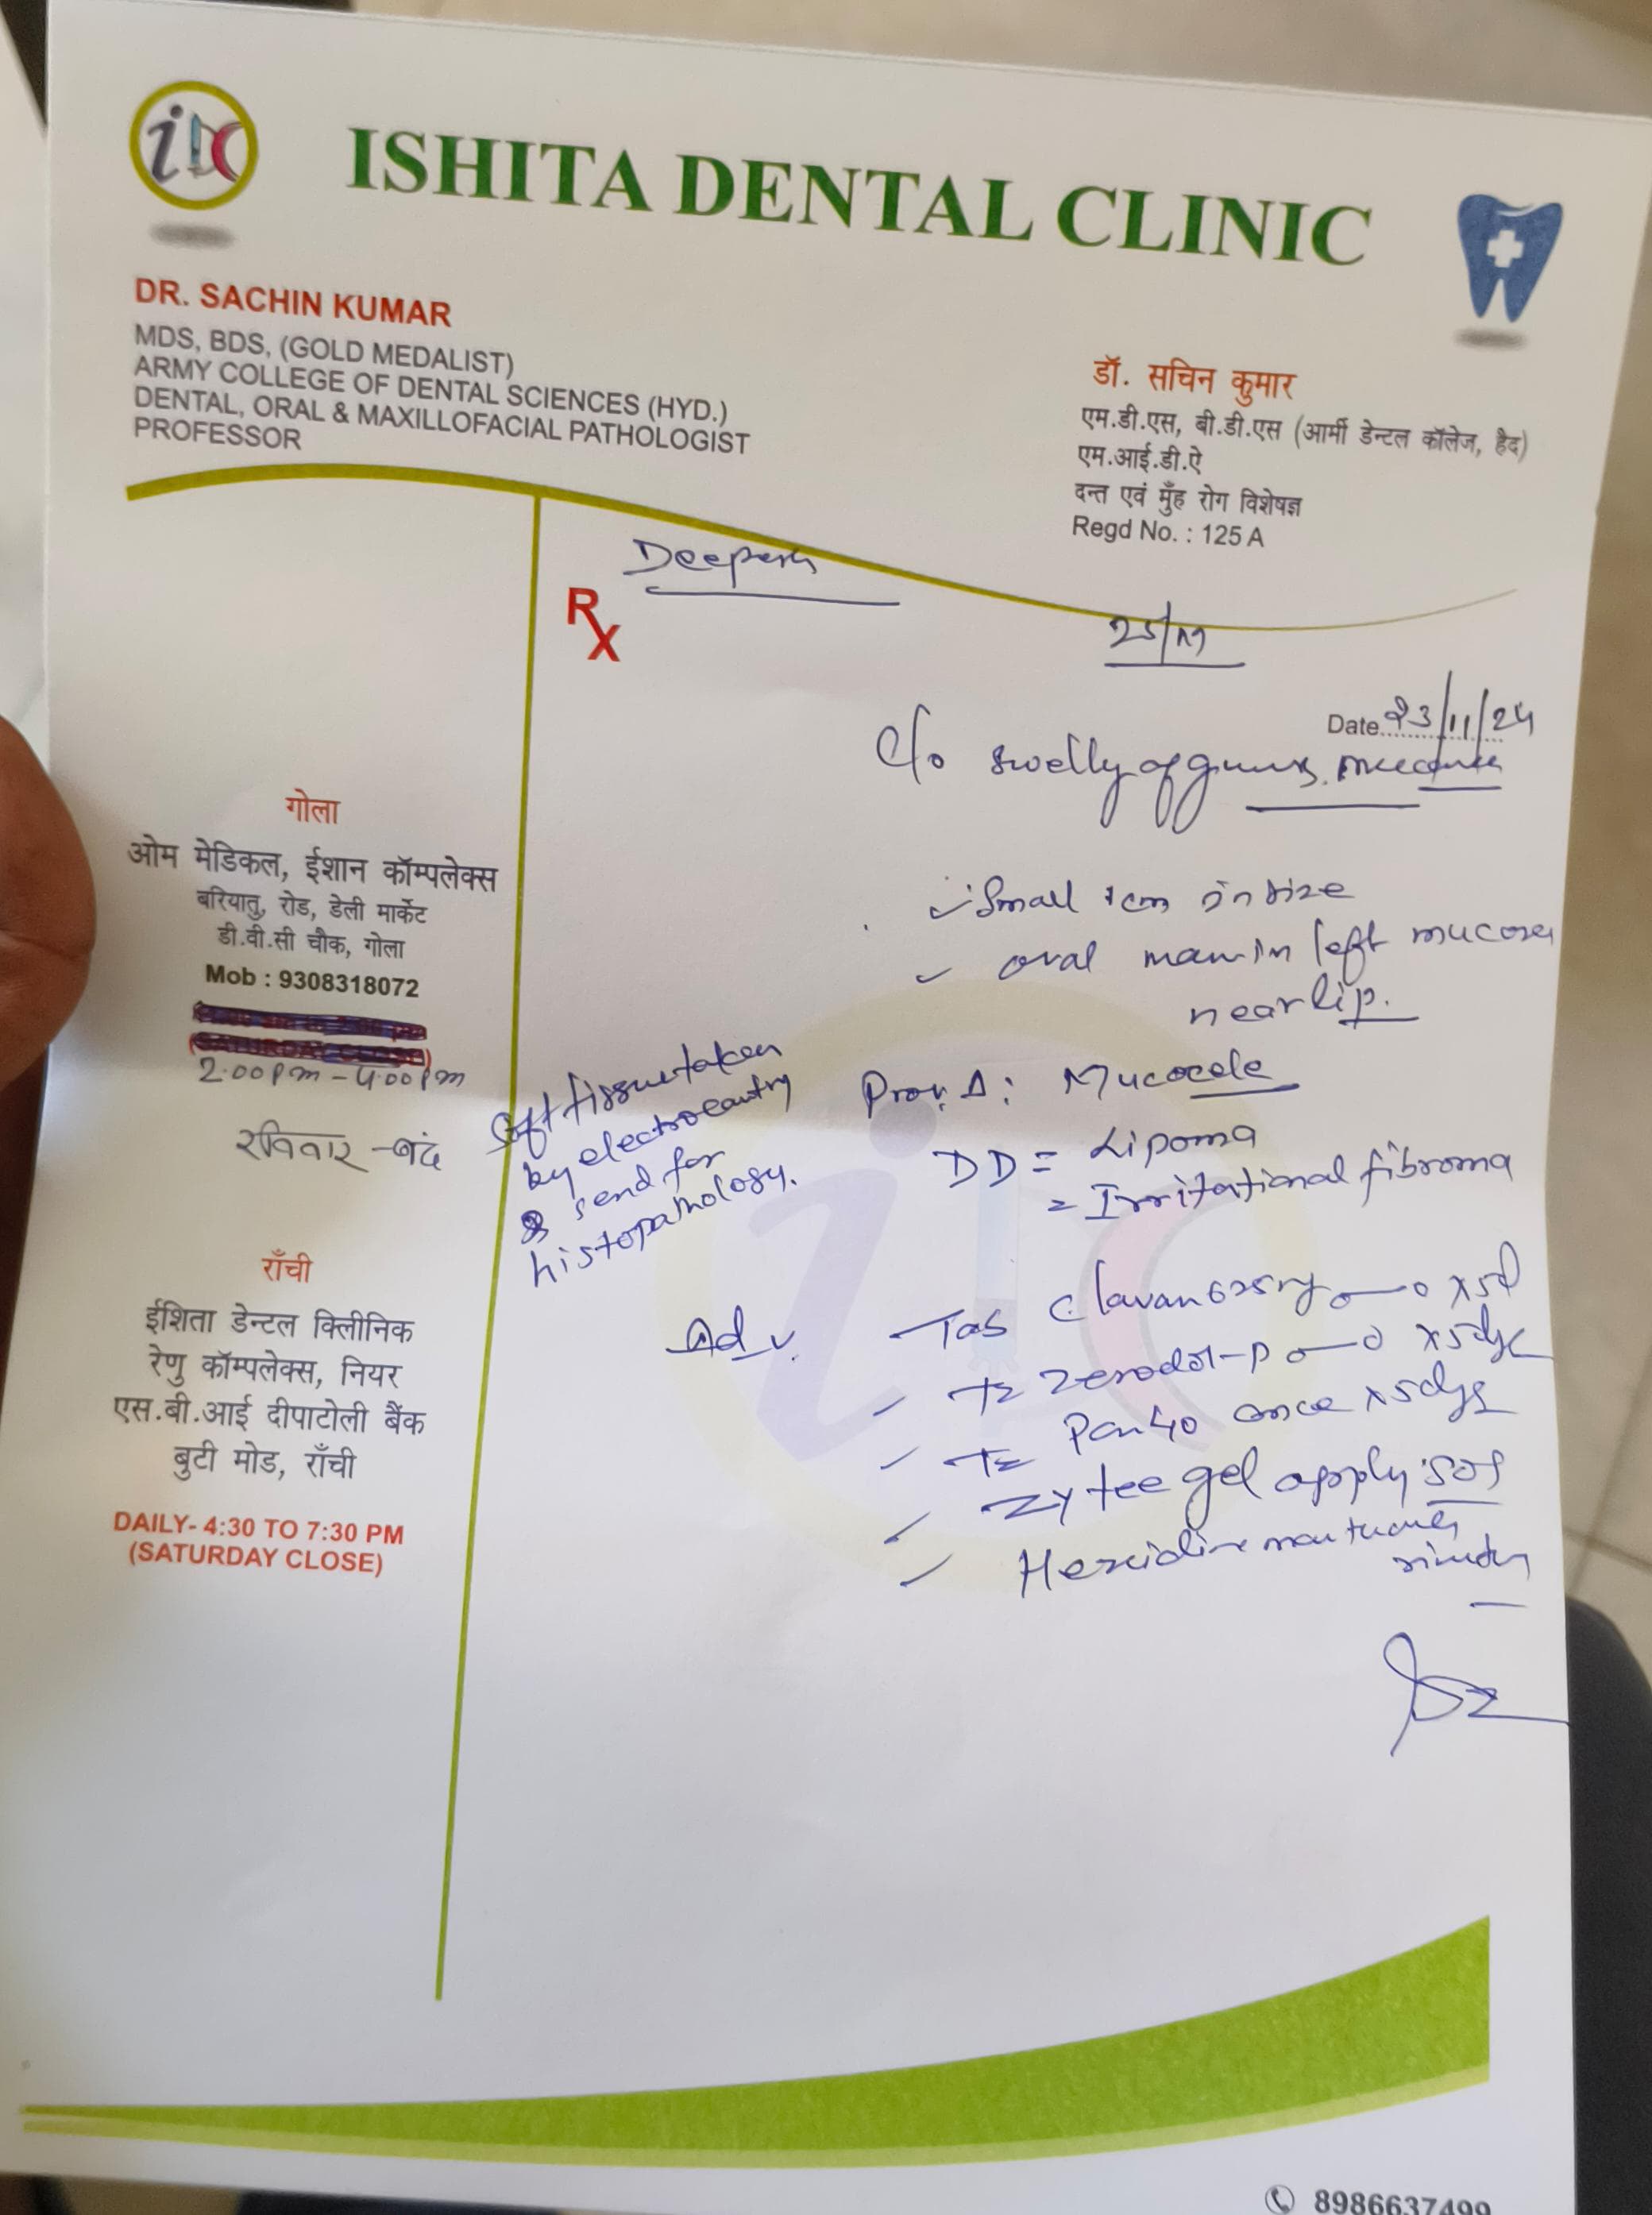 iDC
ISHITA DENTAL CLINIC
DR. SACHIN KUMAR
MDS, BDS, (GOLD MEDALIST)
ARMY COLLEGE OF DENTAL SCIENCES (HYD.)
DENTAL, ORAL & MAXILLOFACIAL PATHOLOGIST
PROFESSOR
डॉ. सचिन कुमार
एम.डी.एस, बी.डी.एस (आर्मी डेन्टल कॉलेज, हैद)
एम.आई.डी.ऐ
दन्त एवं मुँह रोग विशेषज्ञ
Regd No. : 125 A
Rx
25/M
Date 23/11/24
C/o swelly of
Small 1cm in size
oral mass in left mucosa
near lip.
Prov. Δ: Mucocele
DD = Lipoma
= Irritational fibroma
Soft tissue taken
by electrocautry
& send for
histopathology.
Adv. Tab Clavam 625mg o—o x5d
Tz Zerodol-P o—o x5dys
Tz Pan 40 once x5dys
Zytee gel apply SOS
Hexidine
गोला
ओम मेडिकल, ईशान कॉम्पलेक्स
बरियातु, रोड, डेली मार्केट
डी.वी.सी चौक, गोला
Mob : 9308318072
2.00pm - 4.00pm
रविवार - बंद
राँची
ईशिता डेन्टल क्लीनिक
रेणु कॉम्पलेक्स, नियर
एस.बी.आई दीपाटोली बैंक
बुटी मोड, राँची
DAILY- 4:30 TO 7:30 PM
(SATURDAY CLOSE)
8986637499